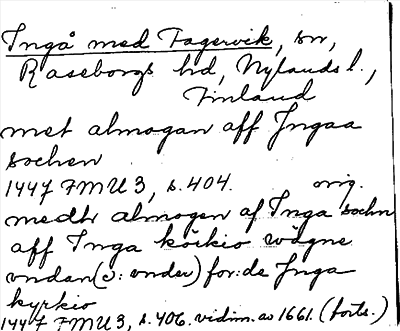 Ingå med Fagervik, sn,
Raseborgs hd, Nylands l.,
Finland
met almogan aff Jngaa
sochen
1447 FMU 3, s. 404. orig.
medh almogen af Inga sochn
aff Inga kōikio wōgne
vndan (ɔ: vnder) for:de Jnga
kyrkio
1447 FMU 3, s. 406. vidim. av 1661. (forts.)